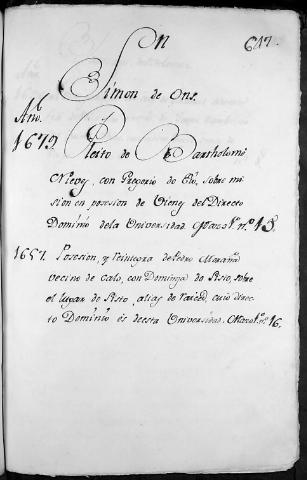 On
647.
Simon de Ons.
Año
1679. Pleito de Bartholome
Nieby, con Gregorio de sobre mi
sion en posesion de Vienes del Directo
Dominio dela Universidad. Mazo 1º. nº 15.
1657. Posesion, y Reintegra de Pedro
vecino de Calo, con Dominga de Sisto, sobre
el lugar de Sisto, alias de cuio direc
to Dominio es deesta Universidad. Mazo 1º. nº 16.